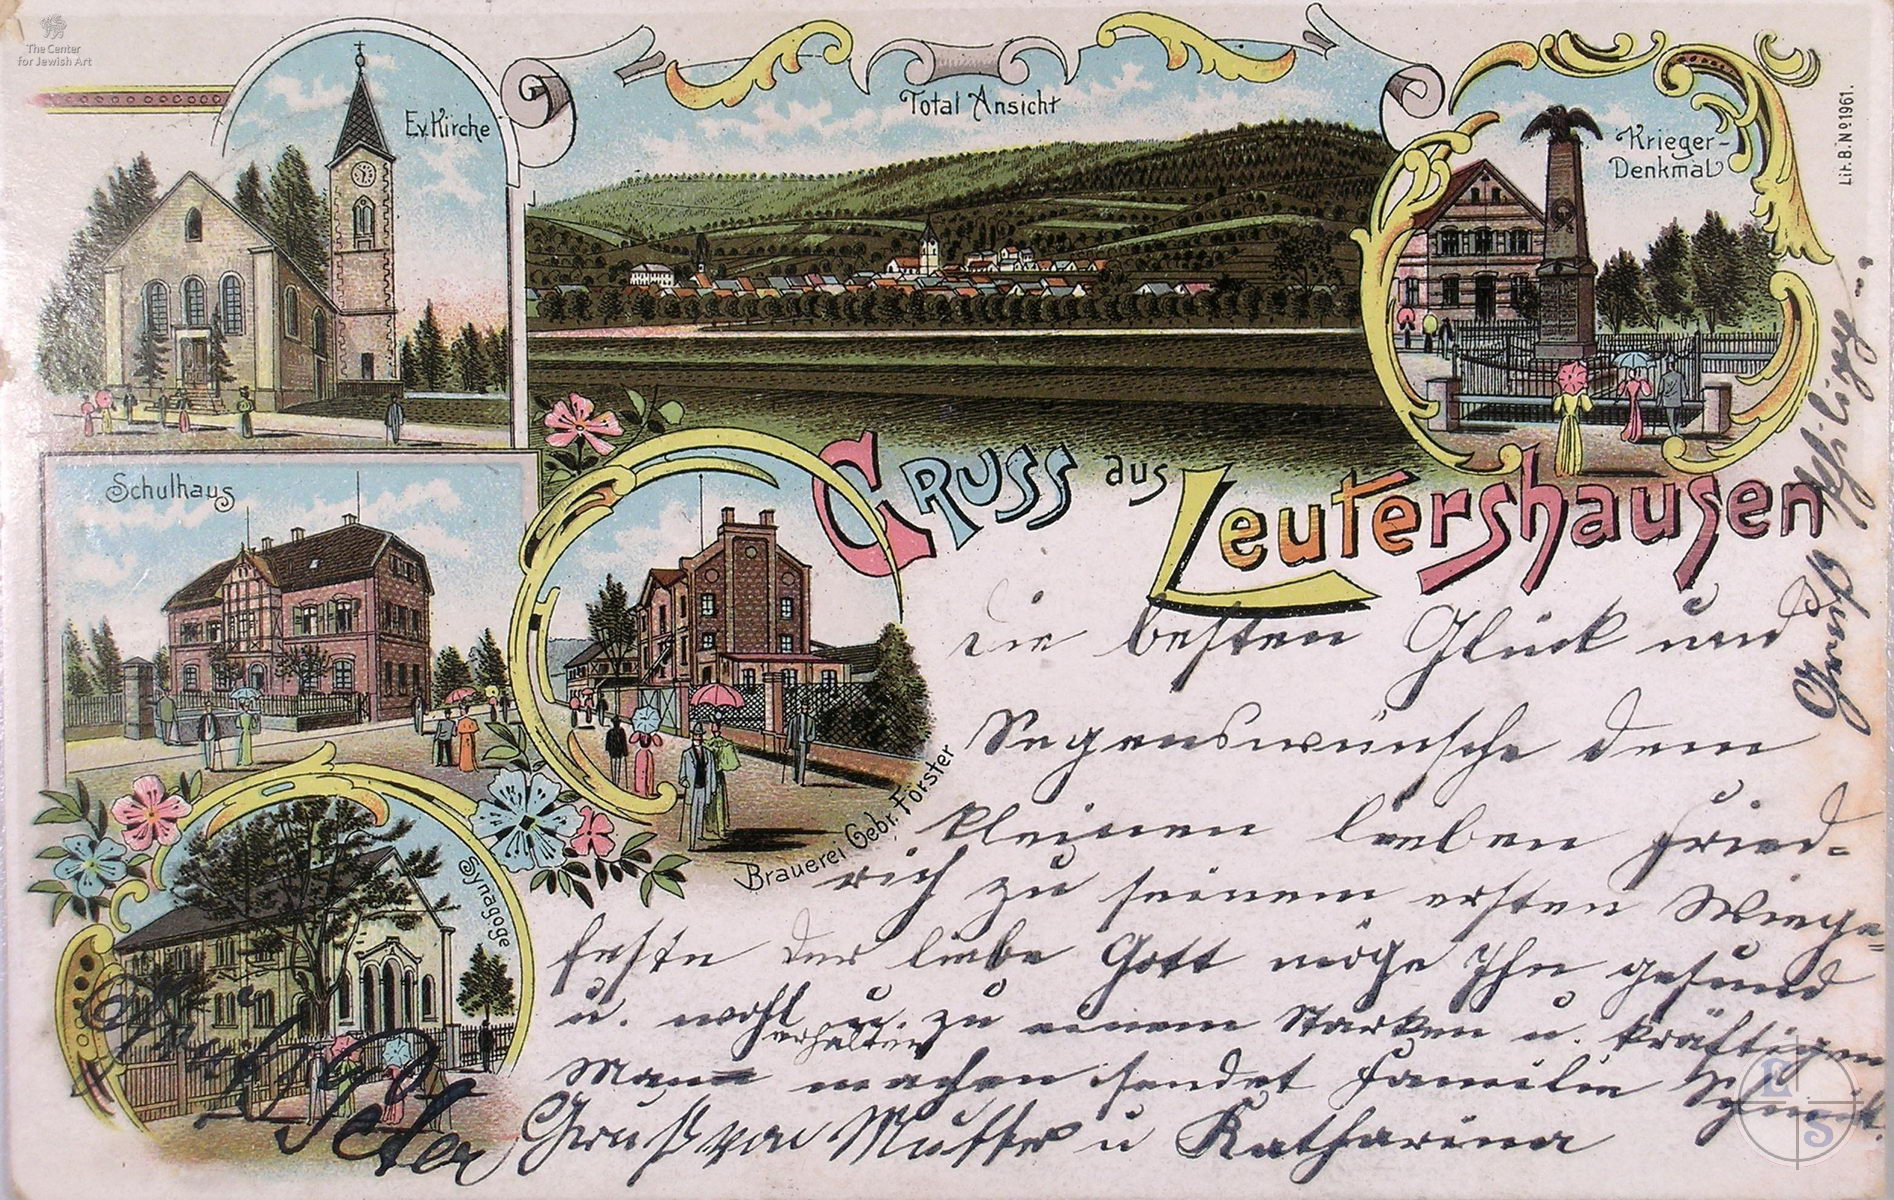 The Center
for Jewish Art
Ev. Kirche
Total Ansicht
Krieger-
Denkmal
Lith. B. No 1961.
Schulhaus
Gruss aus
Leutershausen
Brauerei Gebr. Förster
Synagoge
Die besten Glück und
Segenswünsche dem
kleinen lieben Fried-
rich zu seinem ersten Wiege-
feste der liebe Gott möge Ihn gesund
u. wohl erhalten u. zu einem starken u. kräftigen
Mann machen sendet Familie
Gruß von Mutter u Katharina
Gruß
Peter